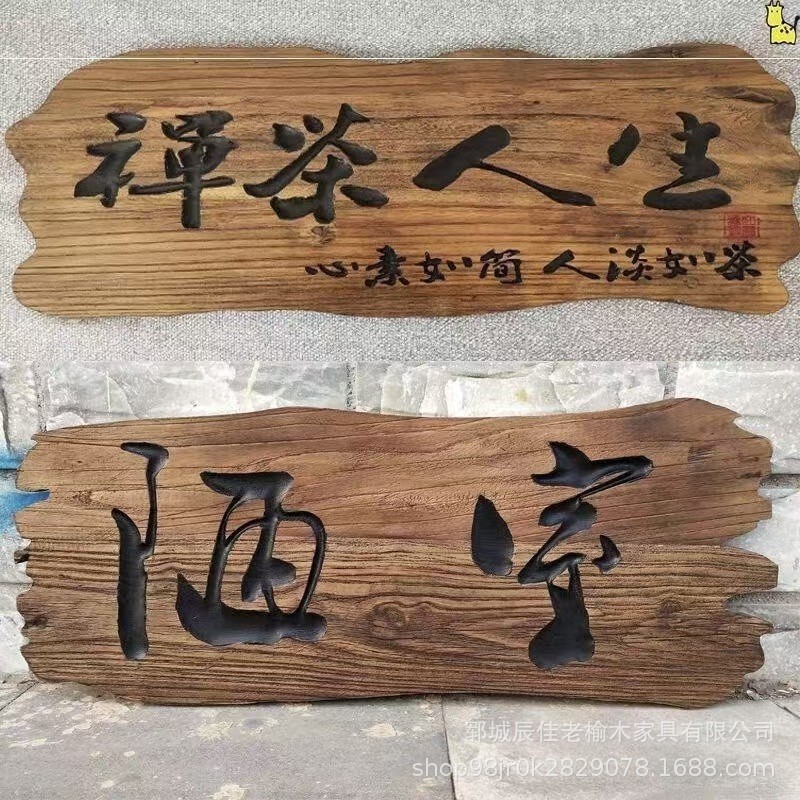 禪茶人生
心素如简 人淡如茶
陋室
郓城辰佳老榆木家具有限公司
shop98jr0k2829078.1688.com